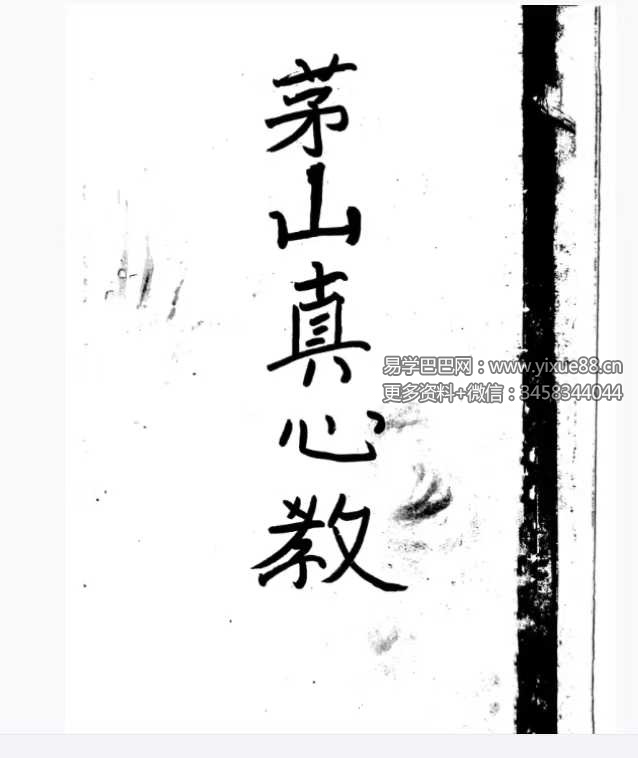 茅山真心教
易学巴巴网：www.yixue88.cn
更多资料+微信：3458344044